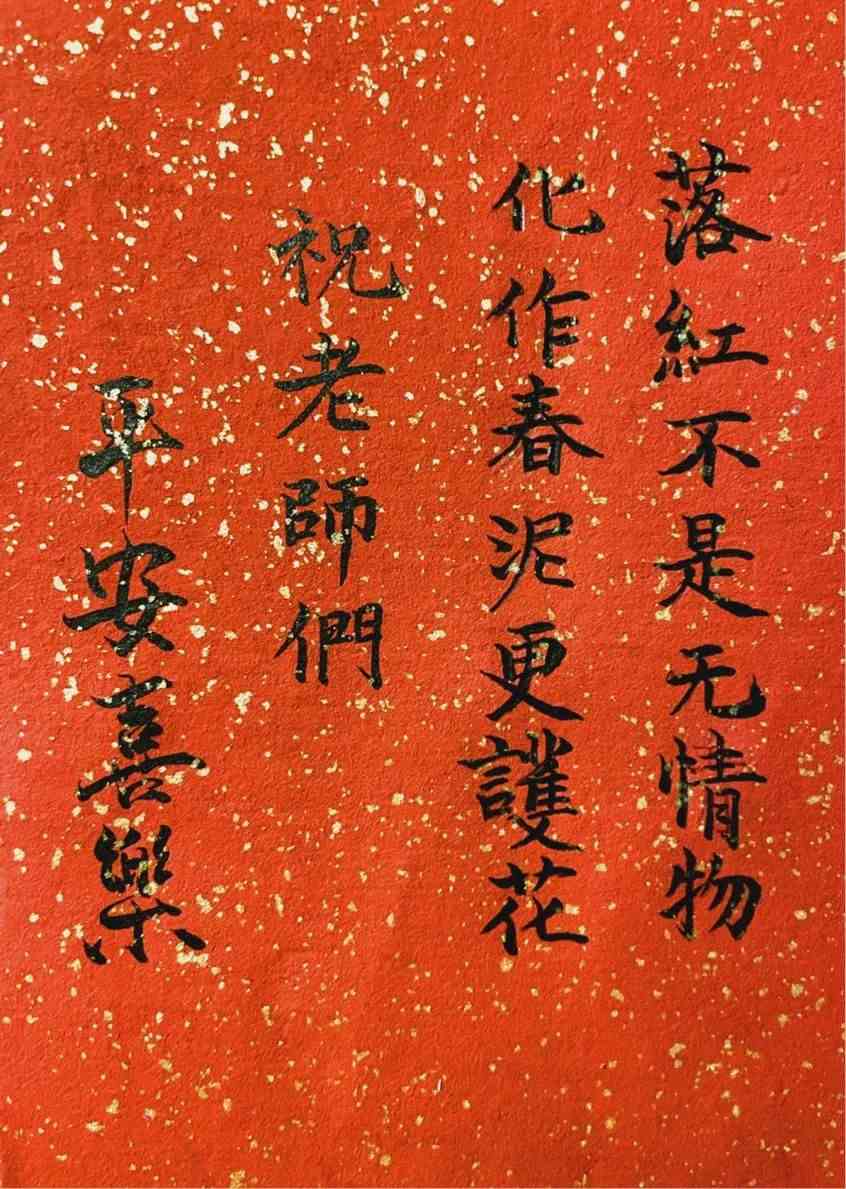 落紅不是无情物
化作春泥更護花
祝老師們
平安喜樂